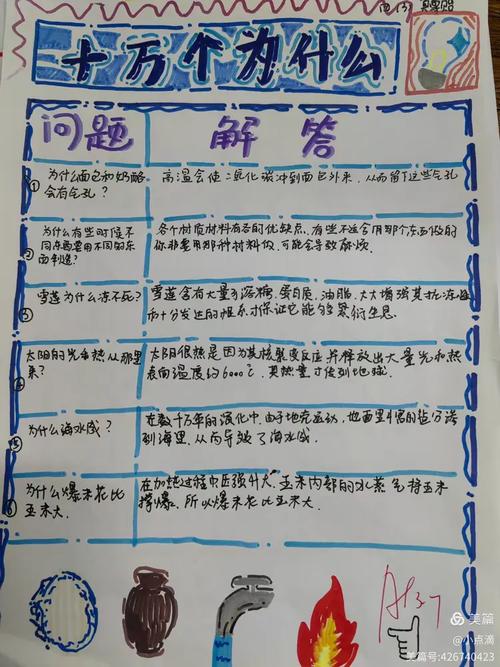 十万个为什么
问题 解答
① 为什么面包和奶酪会有气孔？
高温会使二氧化碳冲到面包外来，从而留下这些气孔
② 为什么有些时候不同东西要用不同的东西制造？
各个材质材料有各的优缺点，有些不适合用那个东西做的
你非要用那种材料做，可能会导致麻烦
③ 雪莲为什么冻不死？
雪莲含有大量可溶糖、蛋白质、油脂，大大增强其抗冻性
而十分发达的根系才保证它能够繁衍生息.
太阳的光和热从那里来？
太阳很热是因为其核聚变反应并释放出大量光和热
表向温度约6000℃，其热量才传到地球.
为什么海水咸？
在数千万年的演化中，由于地壳运动，地面里的盐分
到海里，从而导致了海水咸.
⑥ 为什么爆米花比玉米大.
在加热过程中压强升大，玉米内部的水蒸气将玉米
撑爆，所以爆米花比玉米大
美篇
@小点滴
美篇号:426740423